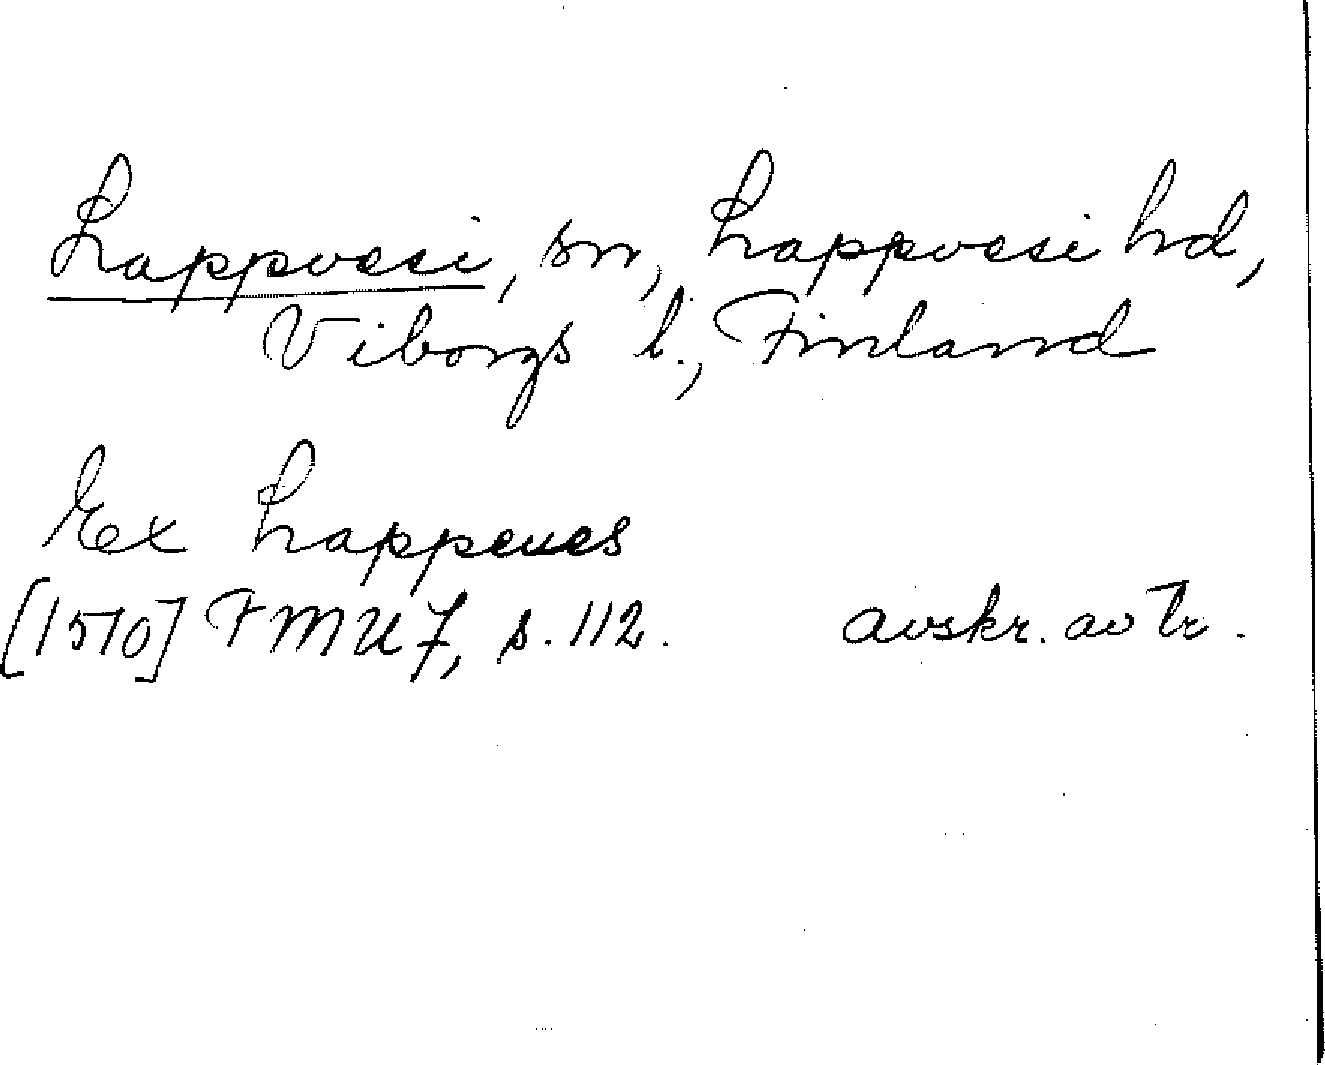 Lappvesi, sn, Lappvesi hd,
Viborgs l., Finland
Ex Lappeues
[1510] FMU 7, s. 112. avskr. av tr.